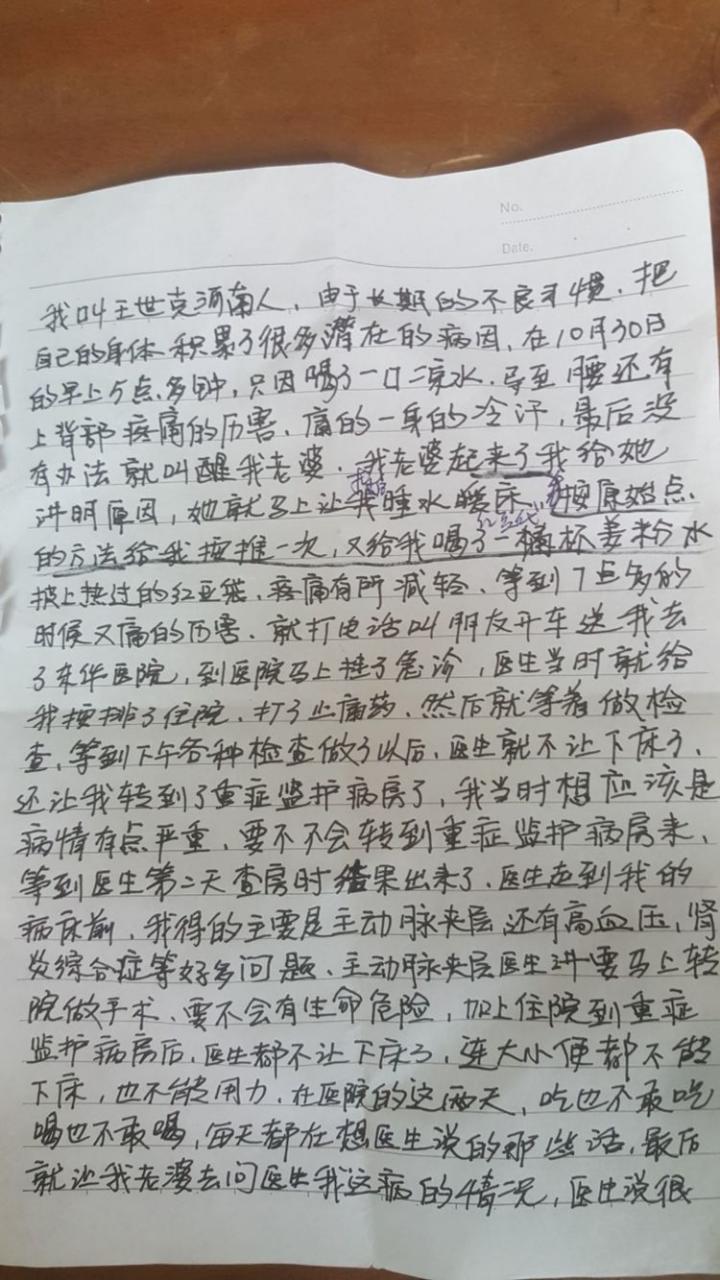 No.
Date.
我叫王世克河南人，由于长期的不良习惯，把
自己的身体积累了很多潜在的病因，在10月30日
的早上5点多钟，只因喝了一口凉水，导至腰还有
上背部疼痛的历害，痛的一身的冷汗，最后没
有办法就叫醒我老婆，我老婆起来了我给她
讲明原因，她就马上让我睡水暖床，按原始点
的方法给我按推一次，又给我喝了一满杯姜粉水
披上热过的红豆袋，疼痛有所减轻，等到7点多的
时候又痛的历害，就打电话叫朋友开车送我去
了东华医院，到医院马上挂了急诊，医生当时就给
我按排了住院，打了止痛药，然后就等着做检
查，等到下午各种检查做了以后，医生就不让下床了，
还让我转到了重症监护病房了，我当时想应该是
病情有点严重，要不不会转到重症监护病房来，
等到医生第二天查房时结果出来了，医生走到我的
病床前，我得的主要是主动脉夹层，还有高血压，肾
炎综合症等好多问题，主动脉夹层医生讲要马上转
院做手术，要不会有生命危险，加上住院到重症
监护病房后，医生都不让下床了，连大小便都不能
下床，也不能用力，在医院的这两天，吃也不敢吃
喝也不敢喝，每天都在想医生说的那些话，最后
就让我老婆去问医生我这病的情况，医生说很